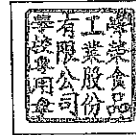 榮食品
工業股份
有限公司
學校專用章